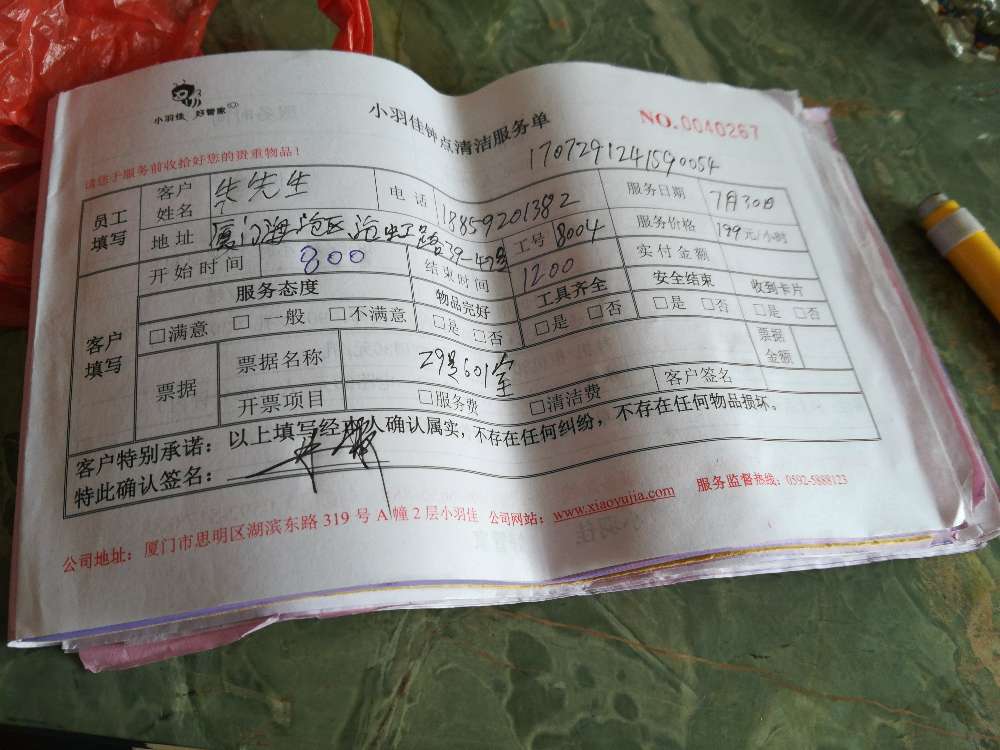 小羽佳 好管家
小羽佳钟点清洁服务单
NO.0040267
请您于服务前收拾好您的贵重物品!
1707291241590054
员工填写 客户姓名 朱先生 电话 18859201382 服务日期 7月30日
地址 厦门海沧区沧虹路39-47号 工号 8004 服务价格 199元/小时
开始时间 800 结束时间 1200 实付金额
客户填写 服务态度 物品完好 工具齐全 安全结束 收到卡片
□满意 □一般 □不满意 □是 □否 □是 □否 □是 □否 □是 □否
票据 票据名称 29号601室 票据金额
开票项目 □服务费 □清洁费 客户签名
客户特别承诺:以上填写经本人确认属实,不存在任何纠纷,不存在任何物品损坏。
特此确认签名:
公司地址:厦门市思明区湖滨东路319号A幢2层小羽佳 公司网站:www.xiaoyujia.com 服务监督热线:0592-5888123